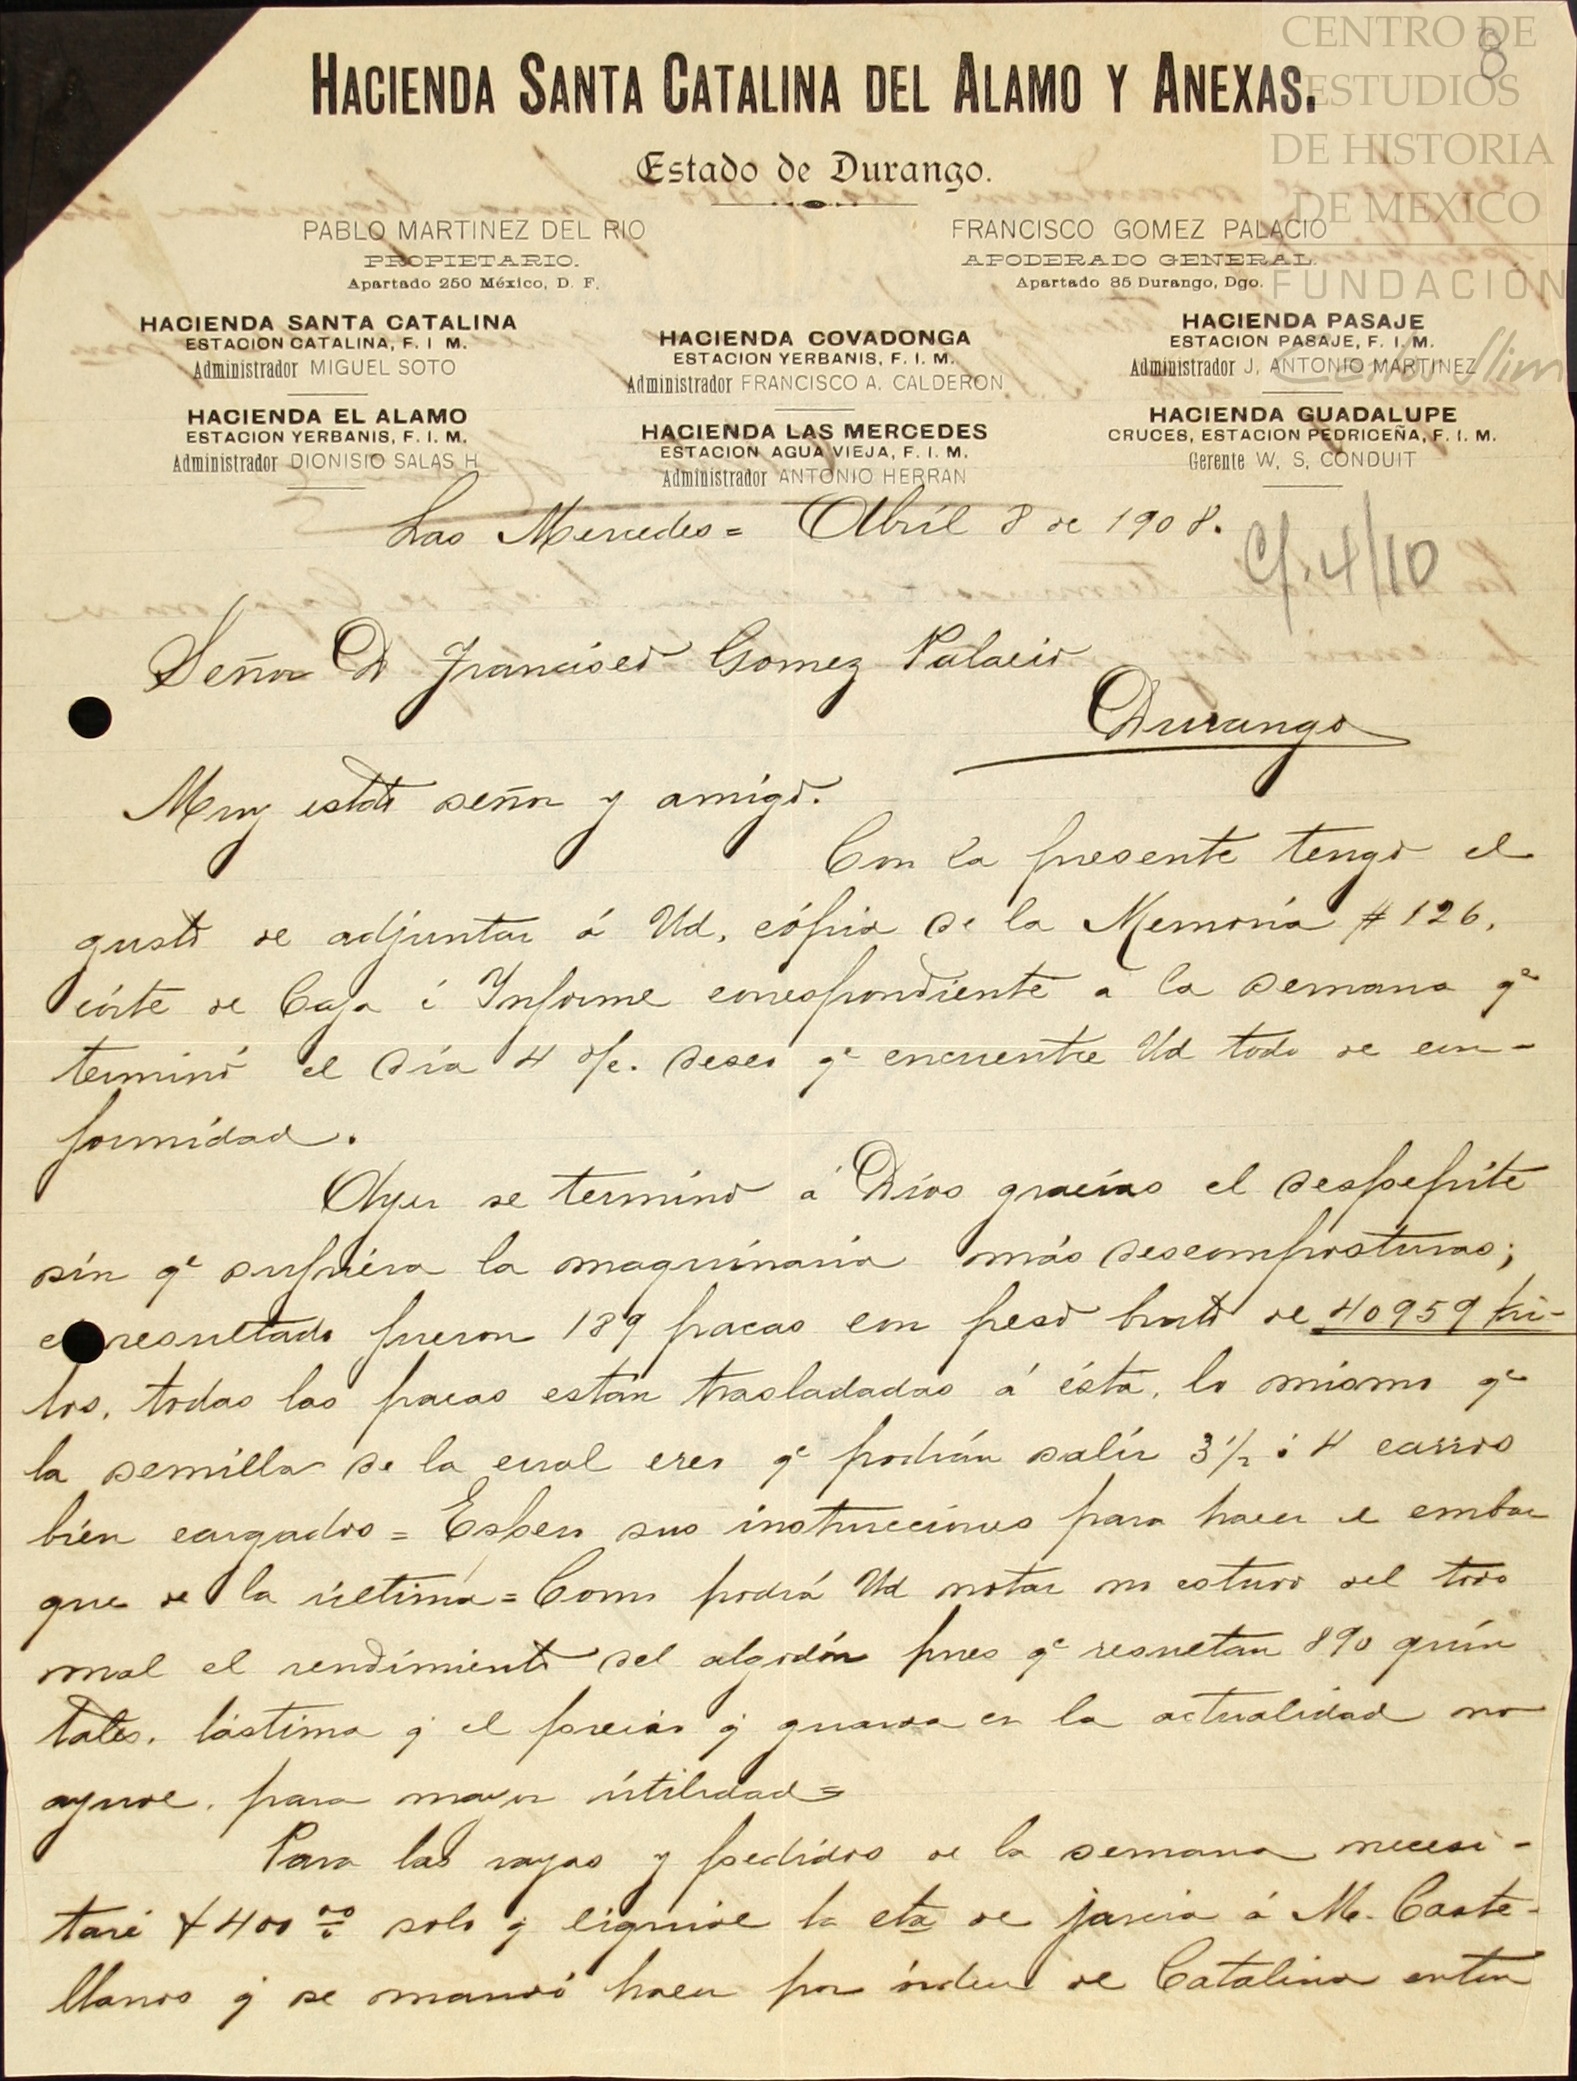 CENTRO DE
ESTUDIOS
DE HISTORIA
DE MEXICO
FUNDACIÓN
Carlos Slim
8
HACIENDA SANTA CATALINA DEL ALAMO Y ANEXAS.
Estado de Durango.
PABLO MARTINEZ DEL RIO
PROPIETARIO.
Apartado 250 México, D. F.
FRANCISCO GOMEZ PALACIO
APODERADO GENERAL
Apartado 85 Durango, Dgo.
HACIENDA SANTA CATALINA
ESTACION CATALINA, F. I. M.
Administrador MIGUEL SOTO
HACIENDA COVADONGA
ESTACION YERBANIS, F. I. M.
Administrador FRANCISCO A. CALDERON
HACIENDA PASAJE
ESTACION PASAJE, F. I. M.
Administrador J. ANTONIO MARTINEZ
HACIENDA EL ALAMO
ESTACION YERBANIS, F. I. M.
Administrador DIONISIO SALAS H
HACIENDA LAS MERCEDES
ESTACION AGUA VIEJA, F. I. M.
Administrador ANTONIO HERRAN
HACIENDA GUADALUPE
CRUCES, ESTACION PEDRICEÑA, F. I. M.
Gerente W. S. CONDUIT
Las Mercedes = Abril 8 de 1908.
C/. 4/10
Señor D Francisco Gomez Palacio
Durango
Muy estdo señor y amigo.
Con la presente tengo el
gusto de adjuntar á Ud, cópia de la Memoria # 126,
córte de Caja é Informe correspondiente a la semana qe
terminó el día 4 d/e. deseo qe encuentre Ud todo de con-
formidad.
Ayer se terminó á Dios gracias el despepite
sin qe sufriera la maquinaria más descomposturas;
el resultado fueron 189 pacas con peso bruto de 40959 ki-
los, todas las pacas están trasladadas á ésta, lo mismo qe
la semilla de la cual creo qe podrán salir 3 1/2 ó 4 carros
bién cargados = Espero sus instrucciones para hacer el embar
que de la última = Como podrá Ud notar no estuvo del todo
mal el rendimiento del algodón pues qe resultan 890 quin
tales, lástima q el precio q guarda en la actualidad no
ayude, para mayor útilidad =
Para las rayas y pedidos de la semana necesi-
taré $400 00 solo q liquide la cta de jarcia á M. Caste-
llanos q se mandó hacer por órden de Catalina entón